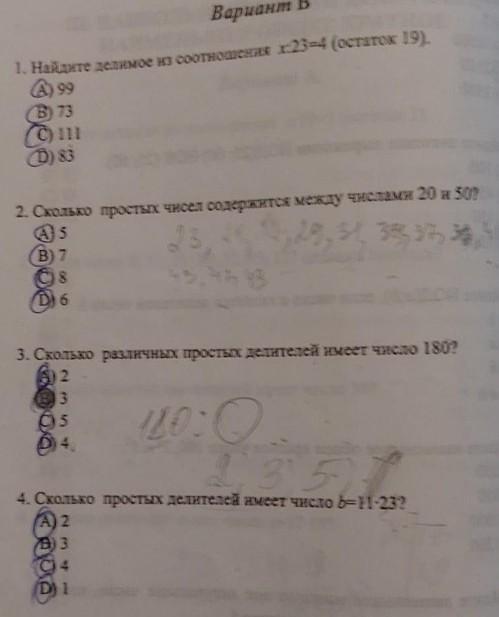 Вариант В
1. Найдите делимое из соотношения x:23=4 (остаток 19).
A) 99
B) 73
C) 111
D) 83
2. Сколько простых чисел содержится между числами 20 и 50?
A) 5
B) 7
C) 8
D) 6
23, 29, 31, 37,
43, 47,
3. Сколько различных простых делителей имеет число 180?
A) 2
B) 3
C) 5
D) 4
180:
2, 3 5,
4. Сколько простых делителей имеет число b=11·23?
A) 2
B) 3
C) 4
D) 1